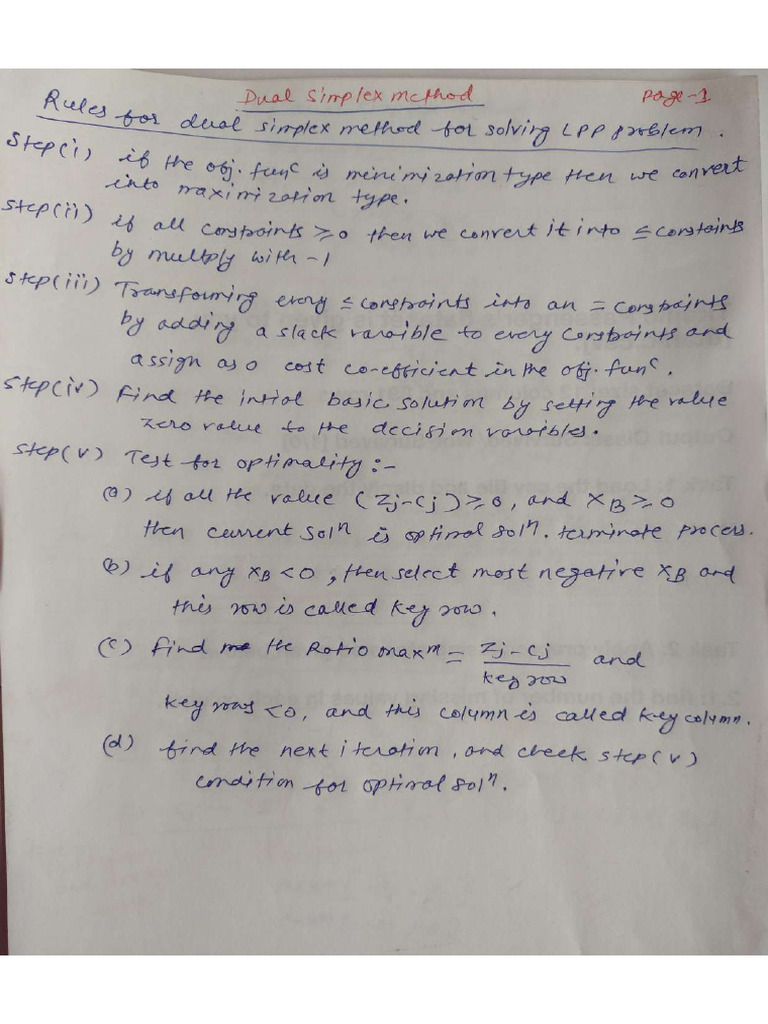 Dual Simplex method
Page-1
Rules for dual simplex method for solving LPP problem.
Step(i) if the obj. func is minimization type then we convert
into maximization type.
Step(ii) if all constraints ≥0 then we convert it into ≤ constraints
by multply with -1
Step(iii) Transforming every ≤ constraints into an = constraints
by adding a slack varaible to every constraints and
assign as 0 cost co-efficient in the obj. func.
Step(iv) Find the intial basic solution by setting the value
zero value to the decision varaibles.
Step(v) Test for optimality:-
(a) if all the value (Zj-Cj)≥0, and XB≥0
then current solⁿ is optimal solⁿ. terminate process.
(b) if any XB<0, then select most negative XB and
this row is called key row.
(c) Find the Ratio maxᵐ = Zj-Cj / key row and
key rows <0, and this column is called key column.
(d) find the next iteration, and check step(v)
condition for optimal solⁿ.